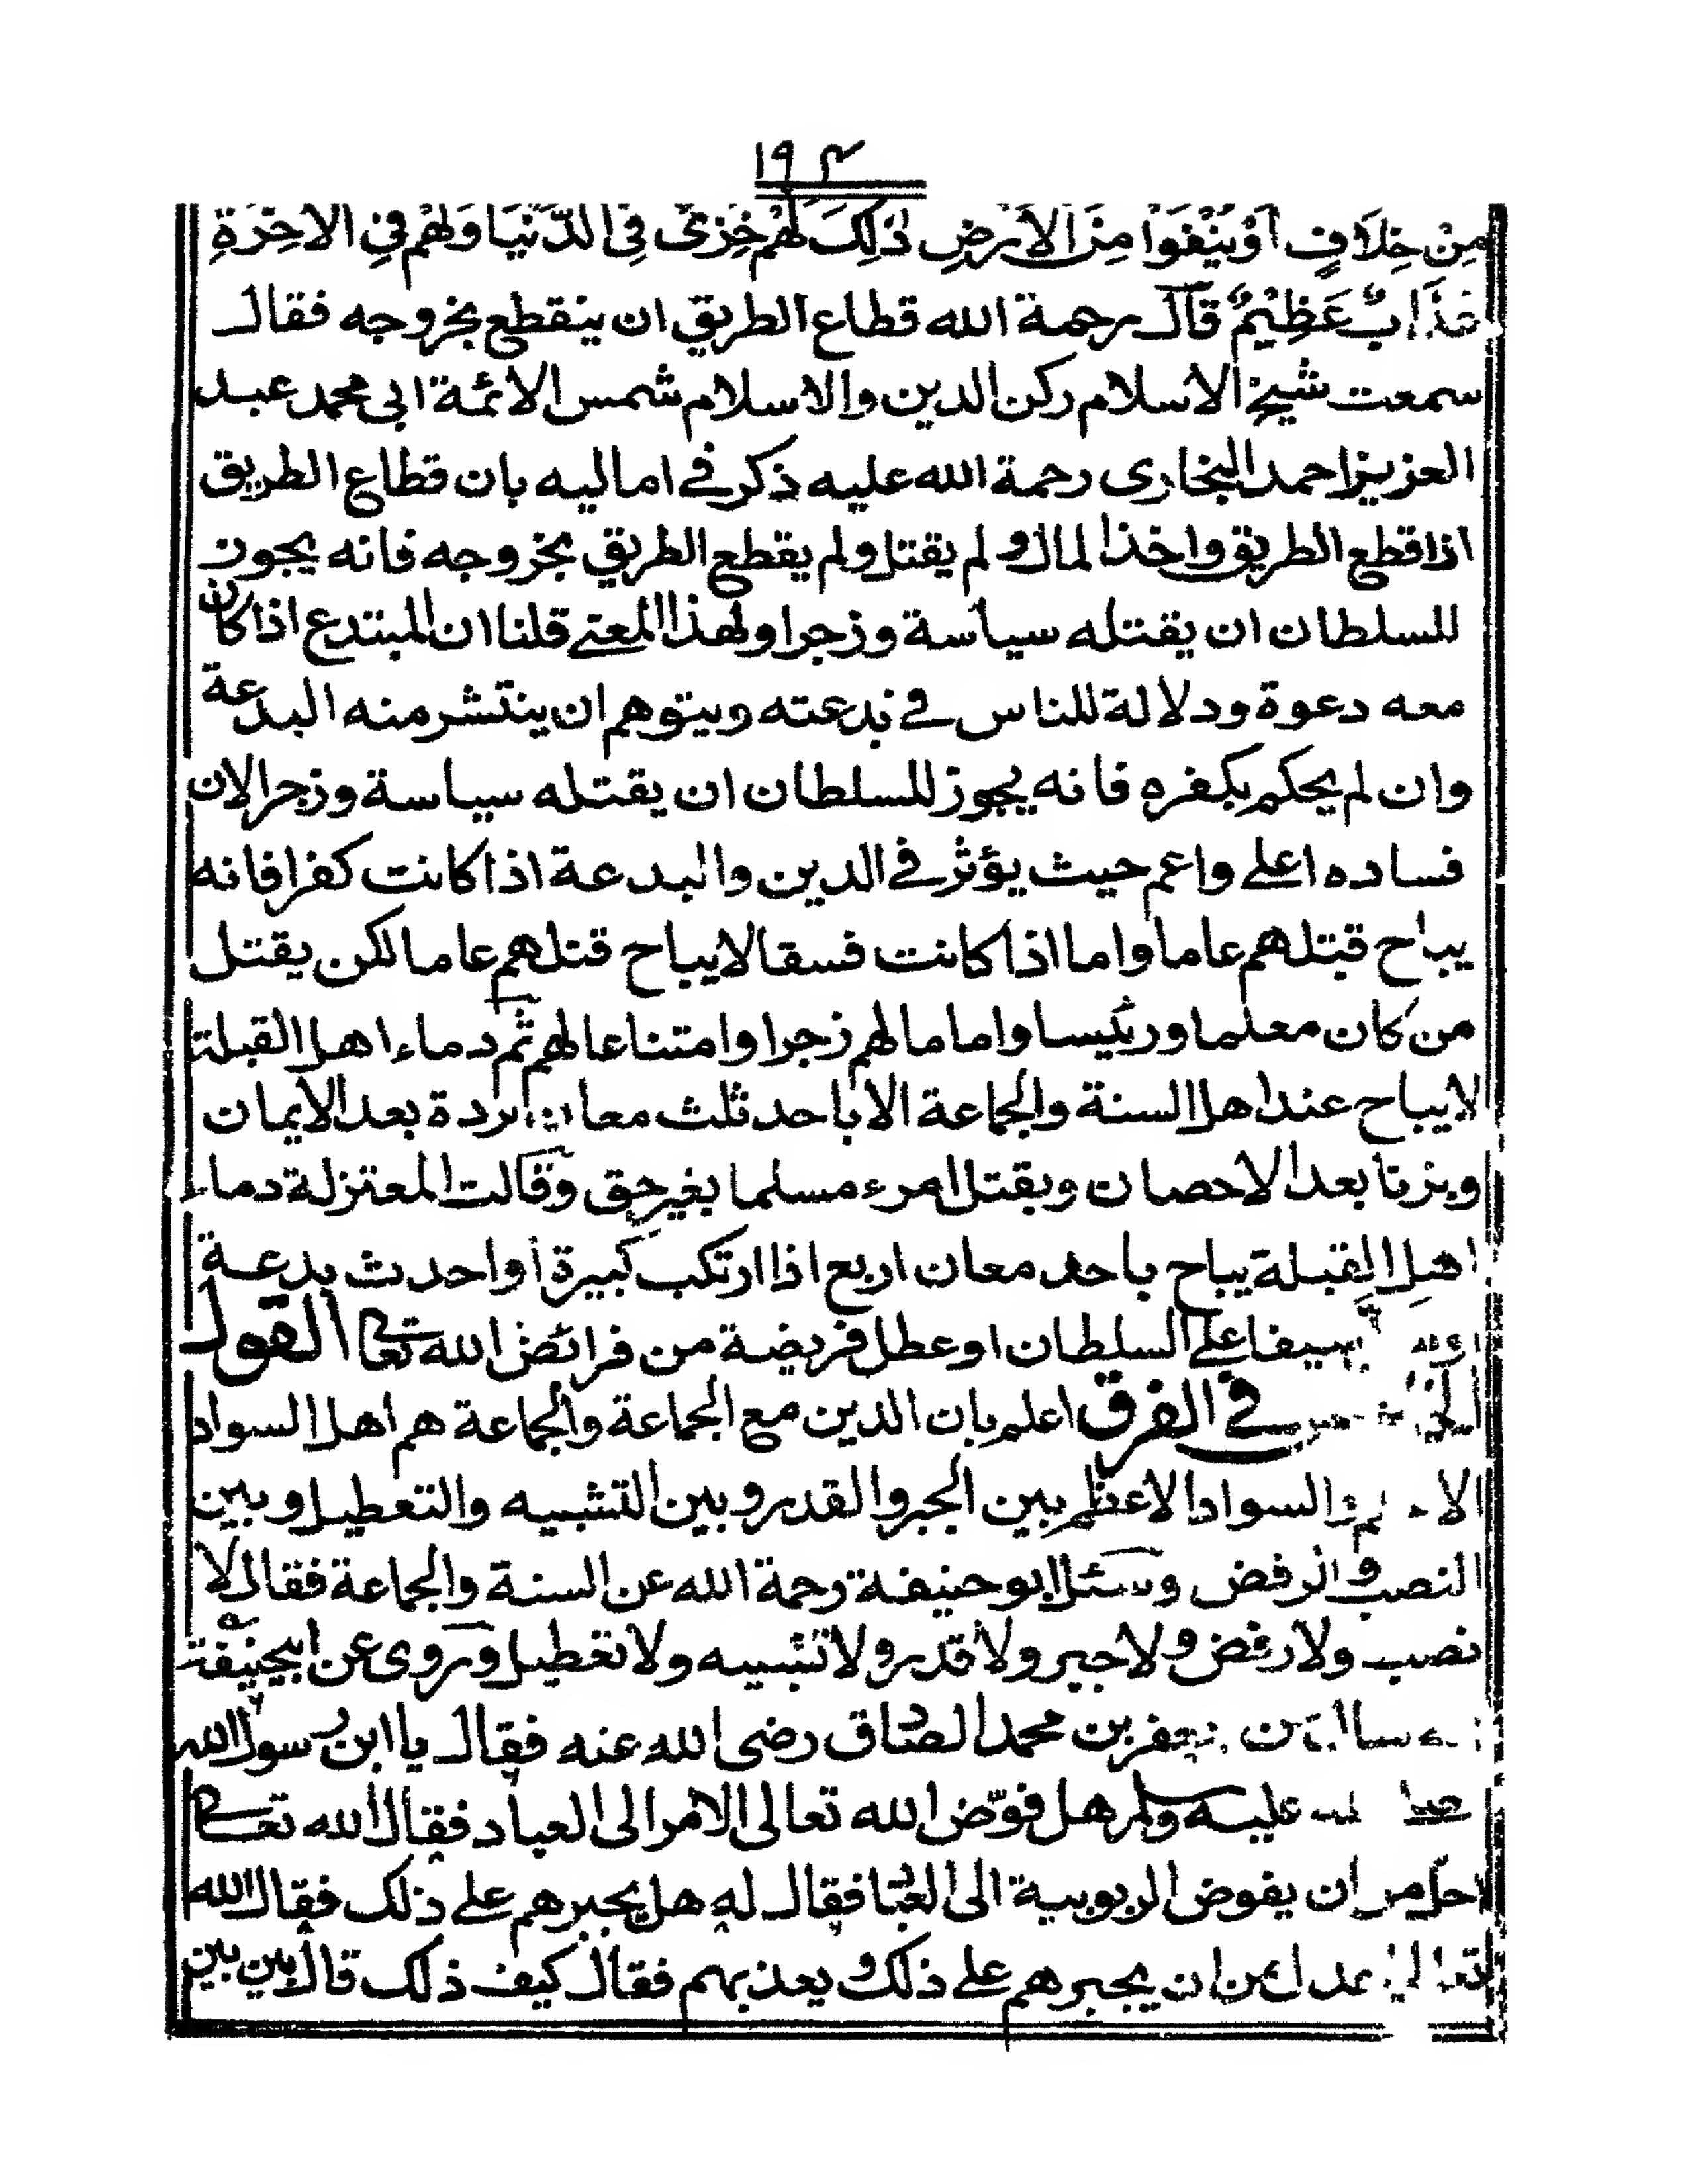 ١٩٣
مِنْ خِلَافٍ اَوْ يُنْفَوْا مِنَ الْاَرْضِ ذٰلِكَ لَهُمْ خِزْىٌ فِى الدُّنْيَا وَلَهُمْ فِى الْاٰخِرَةِ
عَذَابٌ عَظِيْمٌ قال رحمة الله قطاع الطريق ان ينقطع بخروجه فقال
سمعت شيخ الاسلام ركن الدين والاسلام شمس الائمة ابى محمد عبد
العزيز احمد البخارى رحمة الله عليه ذكر فى اماليه بان قطاع الطريق
اذا قطع الطريق واخذ المال ولم يقتل ولم يقطع الطريق بخروجه فانه يجوز
للسلطان ان يقتله سياسة وزجرا ولهذا المعنى قلنا ان المبتدع اذا كان
معه دعوة ودلالة للناس فى بدعته ويتوهم ان ينتشر منه البدعة
وان لم يحكم بكفره فانه يجوز للسلطان ان يقتله سياسة وزجرا لان
فساده اعلى واعم حيث يؤثر فى الدين والبدعة اذا كانت كفرا فانه
يباح قتلهم عاما واما اذا كانت فسقا لا يباح قتلهم عاما لكن يقتل
من كان معلما ورئيسا واماما لهم زجرا وامتناعا لهم ثم دماء اهل القبلة
لا يباح عند اهل السنة والجماعة الا باحد ثلث معان بردة بعد الايمان
وبزنا بعد الاحصان وبقتل امرء مسلما بغير حق وقالت المعتزلة دماء
اهل القبلة يباح باحد معان اربع اذا ارتكب كبيرة او احدث بدعة
سيفا على السلطان او عطل فريضة من فرائض الله تعالى القول
فى الفرق اعلم بان الدين مع الجماعة والجماعة هم اهل السواد
والسواد الاعظم بين الجبر والقدر وبين التشبيه والتعطيل وبين
النصب والرفض وسئل ابو حنيفة رحمة الله عن السنة والجماعة فقال لا
نصب ولا رفض ولا جبر ولا قدر ولا تشبيه ولا تعطيل وروى عن ابيحنيفة
جعفر بن محمد الصادق رضى الله عنه فقال يا ابن رسول الله
عليه وسلم هل فوّض الله تعالى الامر الى العباد فقال الله تعالى
اجلّ من ان يفوض الربوبية الى العباد فقال له هل يجبرهم على ذلك فقال الله
تعالى من ان يجبرهم على ذلك ويعذبهم فقال كيف ذلك قال بين بين